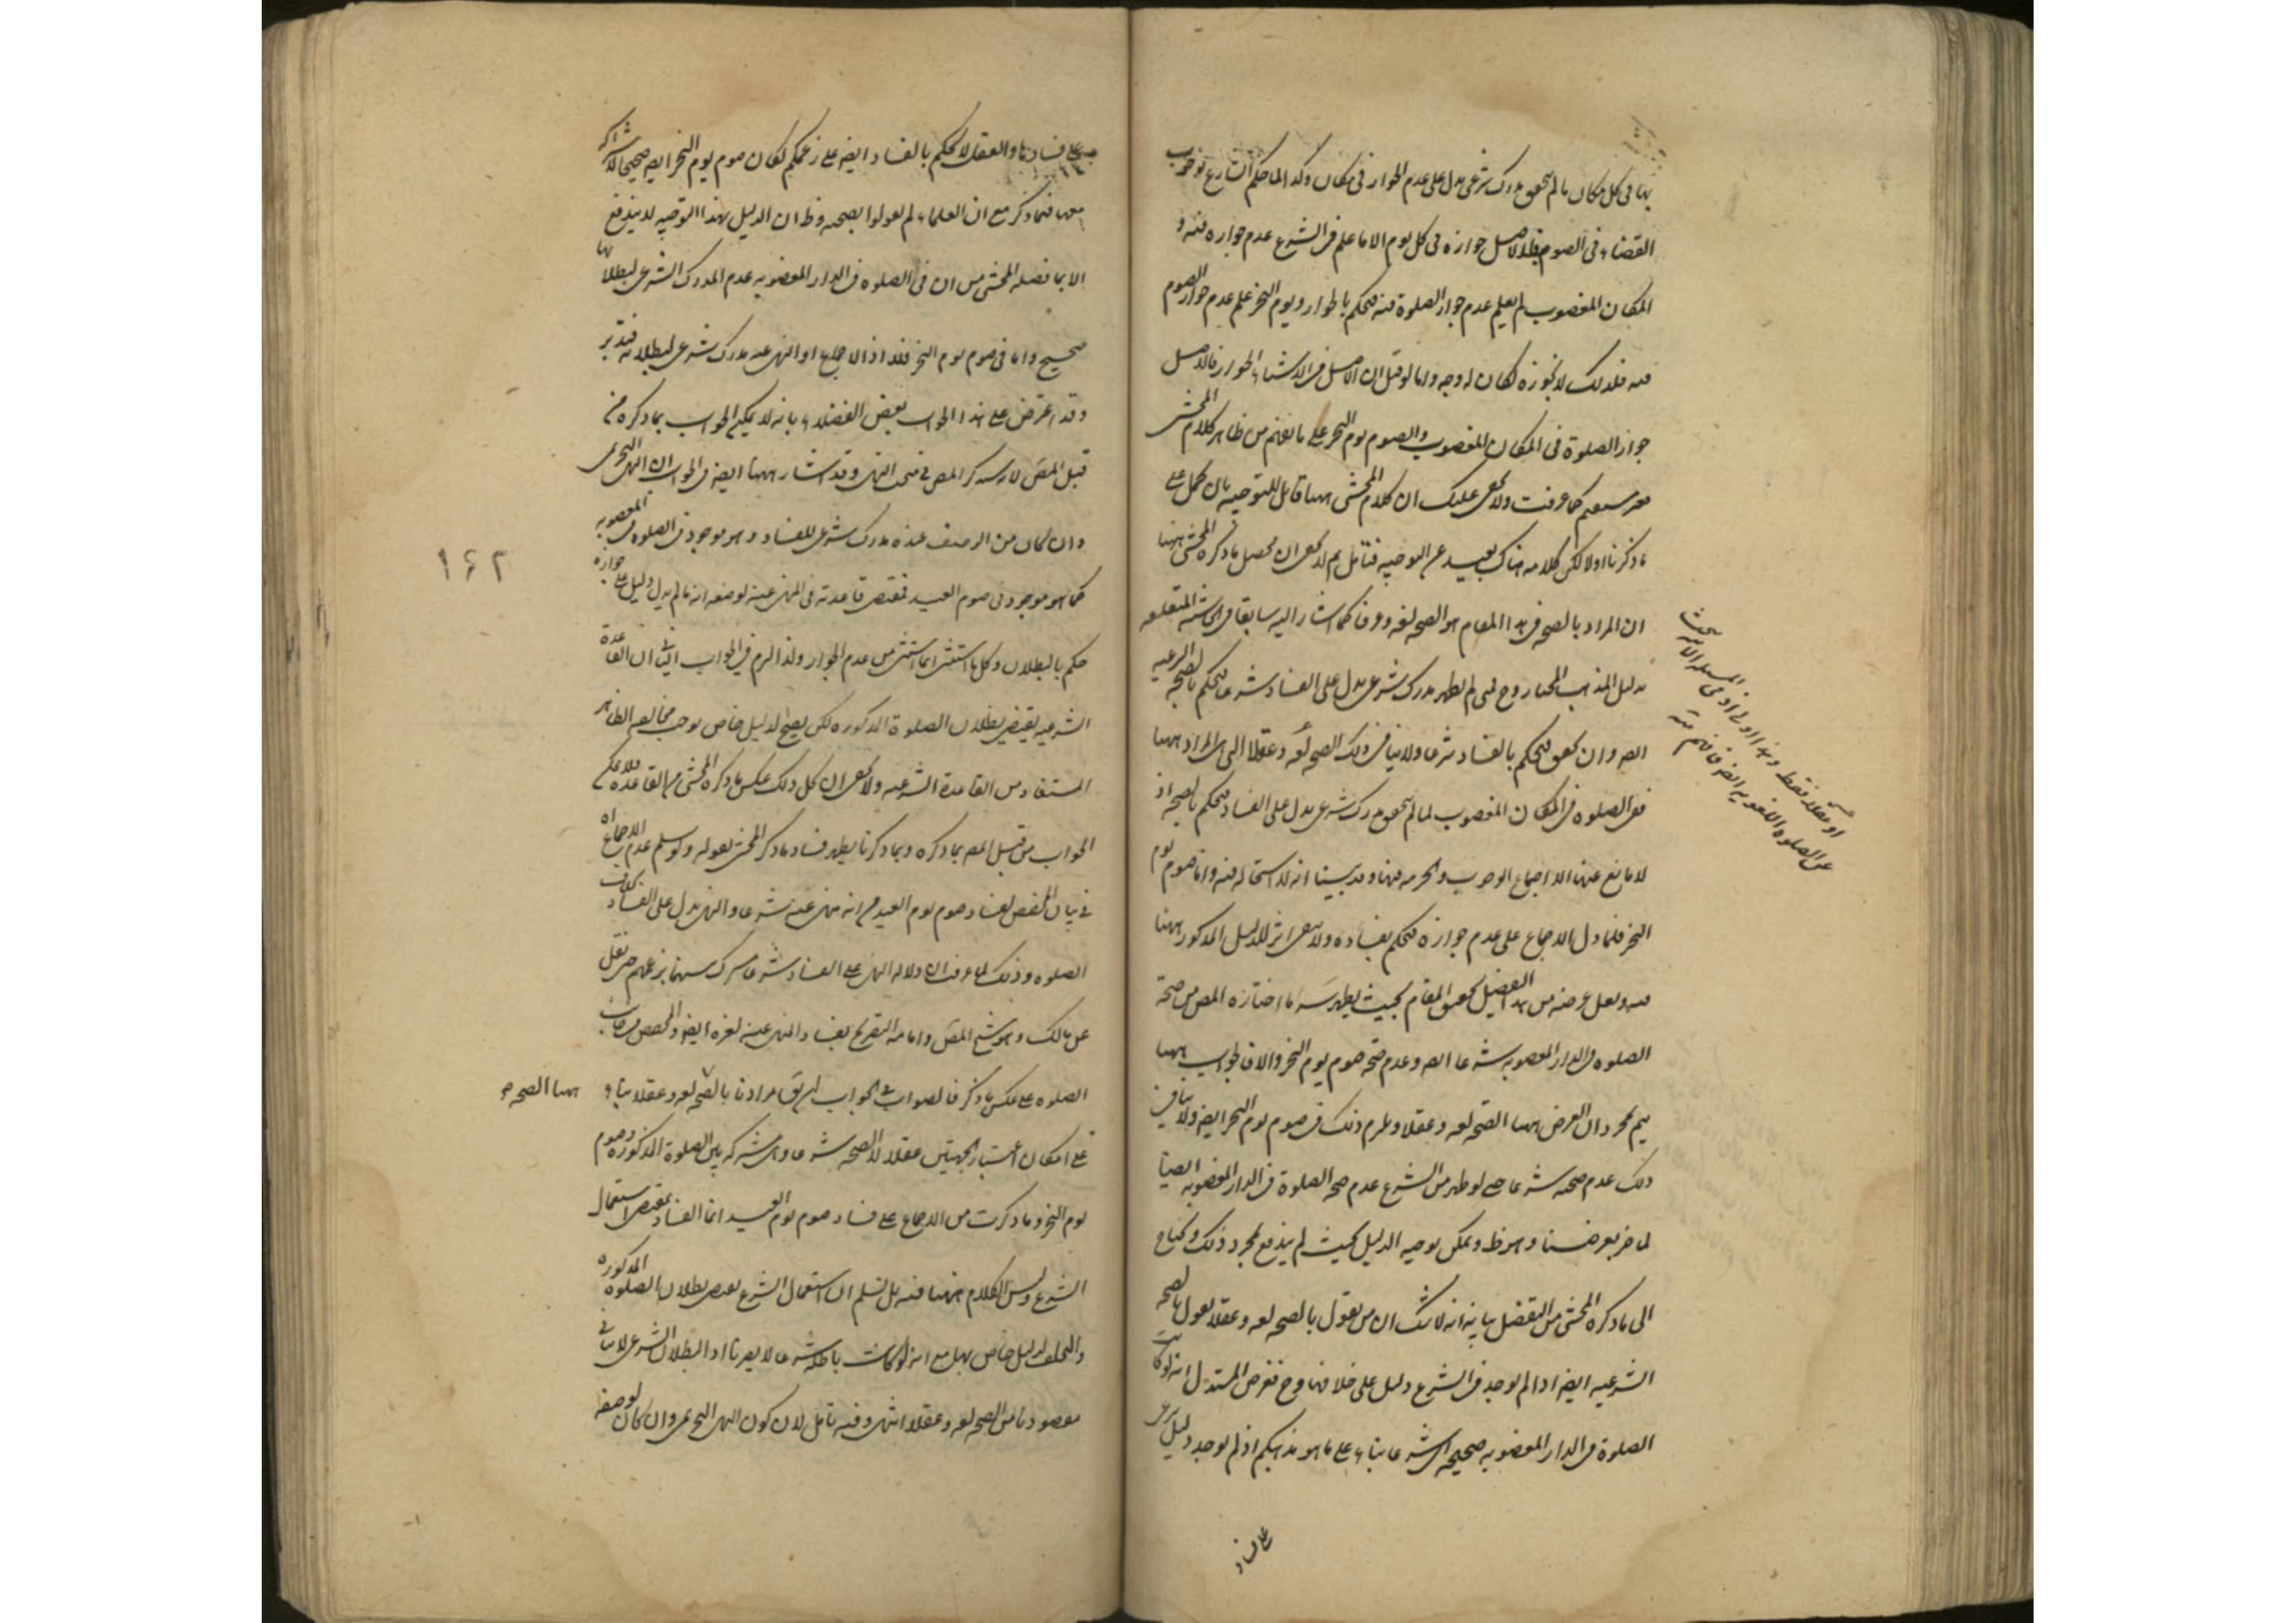 بها في كل مكان ما لم يتحقق مدرك شرعي يدل على عدم الجواز في مكان وكذا لما حكم الشارع بوجوب
القضاء في الصوم فالاصل جوازه في كل يوم الا ما علم في الشرع عدم جوازه فيه و
المكان المغصوب لم يعلم عدم جواز الصلوة فيه فيحكم بالجواز ويوم النحر علم عدم جواز الصوم
فيه فلذلك لا نجوزه لكان له وجه واما لو قيل ان الاصل في الاشياء الجواز فالاصل
جواز الصلوة في المكان المغصوب والصوم يوم النحر على ما يفهم من ظاهر كلام المحشي
فغير مستقيم كما عرفت ولا يخفى عليك ان كلام المحشي ههنا قابل للتوجيه بان يحمل على
ما ذكرنا اولا لكن كلامه هناك بعيد عن التوجيه فتامل ثم لا يخفى ان محصل ما ذكره المحشي ههنا
ان المراد بالصحة في هذا المقام هو الصحة لغة وعرفا كما اشار اليه سابقا في الحاشية المتعلقة
بدليل المذهب المختار وح لمن لم يظهر مدرك شرعي يدل على الفساد شرعا فيحكم بالصحة الشرعية
ايضا وان تحقق فيحكم بالفساد شرعا ولا ينافي ذلك الصحة لغة وعقلا التي هي المراد ههنا
ففي الصلوة في المكان المغصوب لما لم يتحقق مدرك شرعي يدل على الفساد فيحكم بالصحة اذ
لا مانع عنها الا اجتماع الوجوب والحرمة فيها وقد بينا انه لا استحالة فيه واما صوم يوم
النحر فلما دل الاجماع على عدم جوازه فيحكم بفساده ولا يبقى اثر للدليل المذكور ههنا
فيه ولعل غرضه من هذا التفصيل تحقيق المقام بحيث يظهر سر ما اختاره المص من صحة
الصلوة في الدار المغصوبة شرعا ايضا وعدم صحة صوم يوم النحر والا فالجواب ههنا
يتم بمجرد ان الغرض ههنا الصحة لغة وعقلا ونلتزم ذلك في صوم يوم النحر ايضا ولا ينافي
ذلك عدم صحته شرعا حتى لو ظهر من الشرع عدم صحة الصلوة في الدار المغصوبة ايضا
لما ضر بغرضنا وهو ظ ويمكن توجيه الدليل بحيث لم يندفع بمجرد ذلك ويحتاج
الى ما ذكره المحشي من التفصيل بيانه انه لا شك ان من يقول بالصحة لغة وعقلا يقول بالصحة
الشرعية ايضا اذا لم يوجد في الشرع دليل على خلافها وح نفرض المستدل انه لو كانت
الصلوة في الدار المغصوبة صحيحة شرعا بناء على ما هو مذهبكم اذ لم يوجد دليل شرعي
على فساد
او عقلا فقط وهذا اولى في المسئلة الاتية بحث
عن الصلوة اللغوية ايضا فافهم منه
على فسادها والعقل لا يحكم بالفساد ايضا على زعمكم لكان صوم يوم النحر ايضا صحيحا لاشتراكه
معها فيما ذكر مع ان العلماء لم يقولوا بصحته وظ ان الدليل بهذا التوجيه لا يندفع
الا بما فصله المحشي من ان في الصلوة في الدار المغصوبة عدم المدرك الشرعي لبطلانها
صحيح واما في صوم يوم النحر فلا اذ الاجماع او النهي عنه مدرك شرعي لبطلانه فتدبر
وقد اعترض على هذا الجواب بعض الفضلاء بانه لا يمكن الجواب بما ذكره من
قبل المص لانه سيذكر المص في مبحث النهي وقد اشار ههنا ايضا في الجواب ان النهي التحريمي
وان كان من الوصف عنده مدرك شرعي للفساد وهو موجود في الصلوة في المغصوبة
كما هو موجود في صوم العيد فمقتضى قاعدته في المنهي عنه لوصفه انه ما لم يدل دليل على جوازه
حكم بالبطلان وكل ما استثنى انما استثنى من عدم الجواز ولذا التزم في الجواب الثاني ان القاعدة
الشرعية يقتضي بطلان الصلوة المذكورة لكن يصح لدليل خاص يوجب مخالفة الظاهر
المستفاد من القاعدة الشرعية ولا يخفى ان كل ذلك عكس ما ذكره المحشي من القاعدة فلا يمكن
الجواب من قبل المص بما ذكره وبما ذكرنا يظهر فساد ما ذكر المحشي بقوله ولو سلم عدم الاجماع اه
في بيان المخصص لفساد صوم يوم العيد من انه نهى عنه شرعا والنهي يدل على الفساد بخلاف
الصلوة وذلك لما عرفت ان دلالة النهي على الفساد شرعا مشترك بينهما بزعمهم حتى نقل
عن مالك وهو شيخ المص وامامه التصريح بفساد المنهي عنه لغيره ايضا والمخصص في جانب
الصلوة على عكس ما ذكر فالصواب في الجواب ان يق مرادنا بالصحة لغة وعقلا بناء ههنا الصحة
على امكان اعتبار الجهتين عقلا لا الصحة شرعا وهي مشتركة بين الصلوة المذكورة وصوم
يوم النحر وما ذكرت من الاجماع على فساد صوم يوم العيد انما الفساد بمقتضى استعمال
الشرع وليس الكلام ههنا فيه بل نسلم ان استعمال الشرع يقتضي بطلان الصلوة المذكورة
والتخلف لدليل خاص بها مع انه لو كانت باطلة شرعا لا يضرنا اذ البطلان الشرعي لا ينافي
مقصودنا من الصحة لغة وعقلا انتهى وفيه تامل لان كون النهي التحريمي وان كان لوصفه
١٦٢